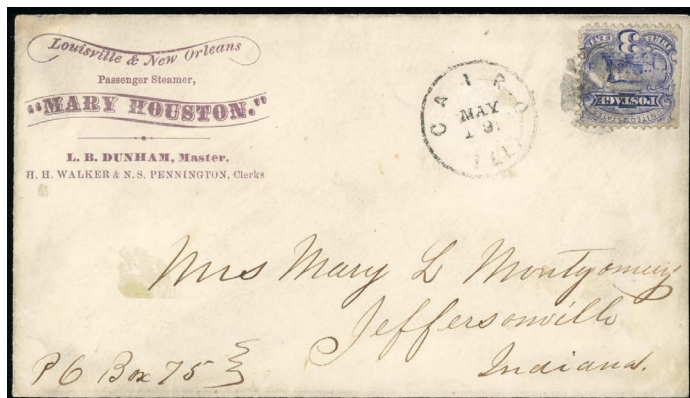 Louisville & New Orleans
Passenger Steamer,
"MARY HOUSTON."
L. B. DUNHAM, Master.
H. H. WALKER & N. S. PENNINGTON, Clerks
CAIRO
MAY
19
ILL.
UNITED STATES
POSTAGE
3
Mrs Mary L Montgomery
Jeffersonville
Indiana.
P O Box 75